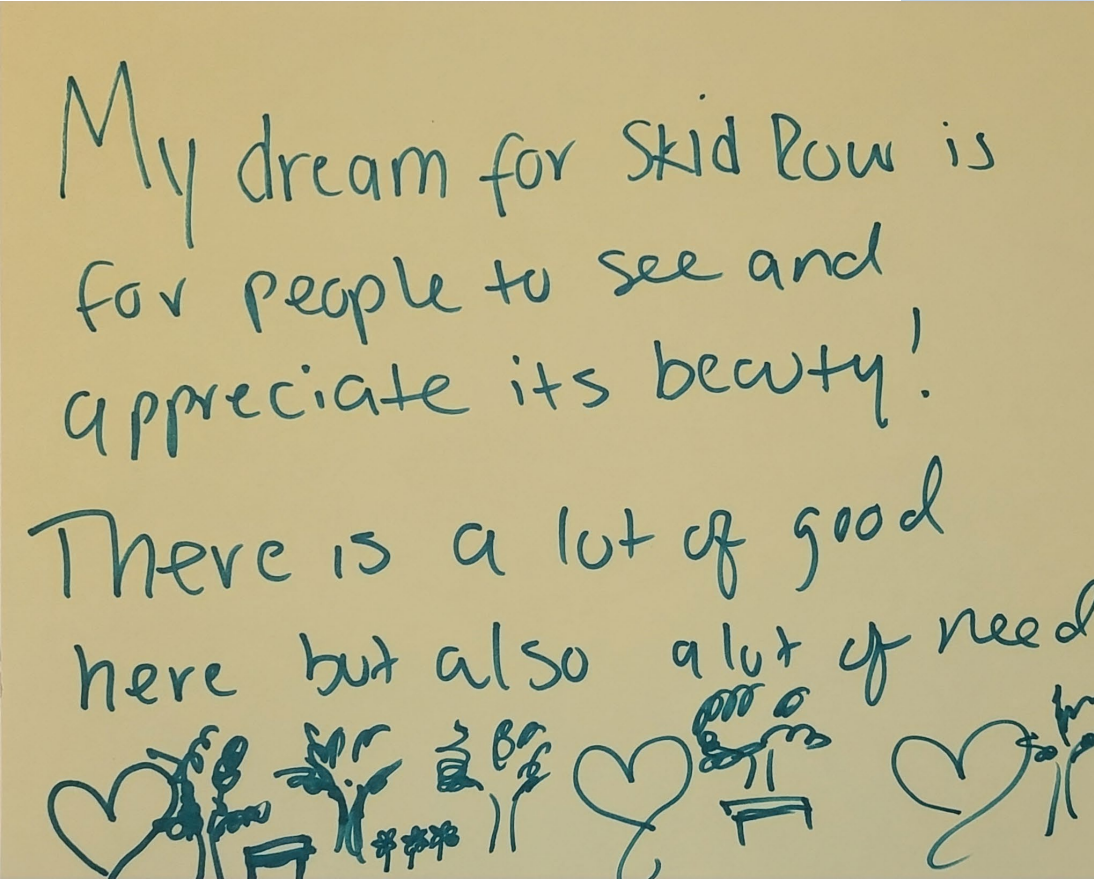 My dream for Skid Row is
for people to see and
appreciate its beauty!
There is a lot of good
here but also a lot of need